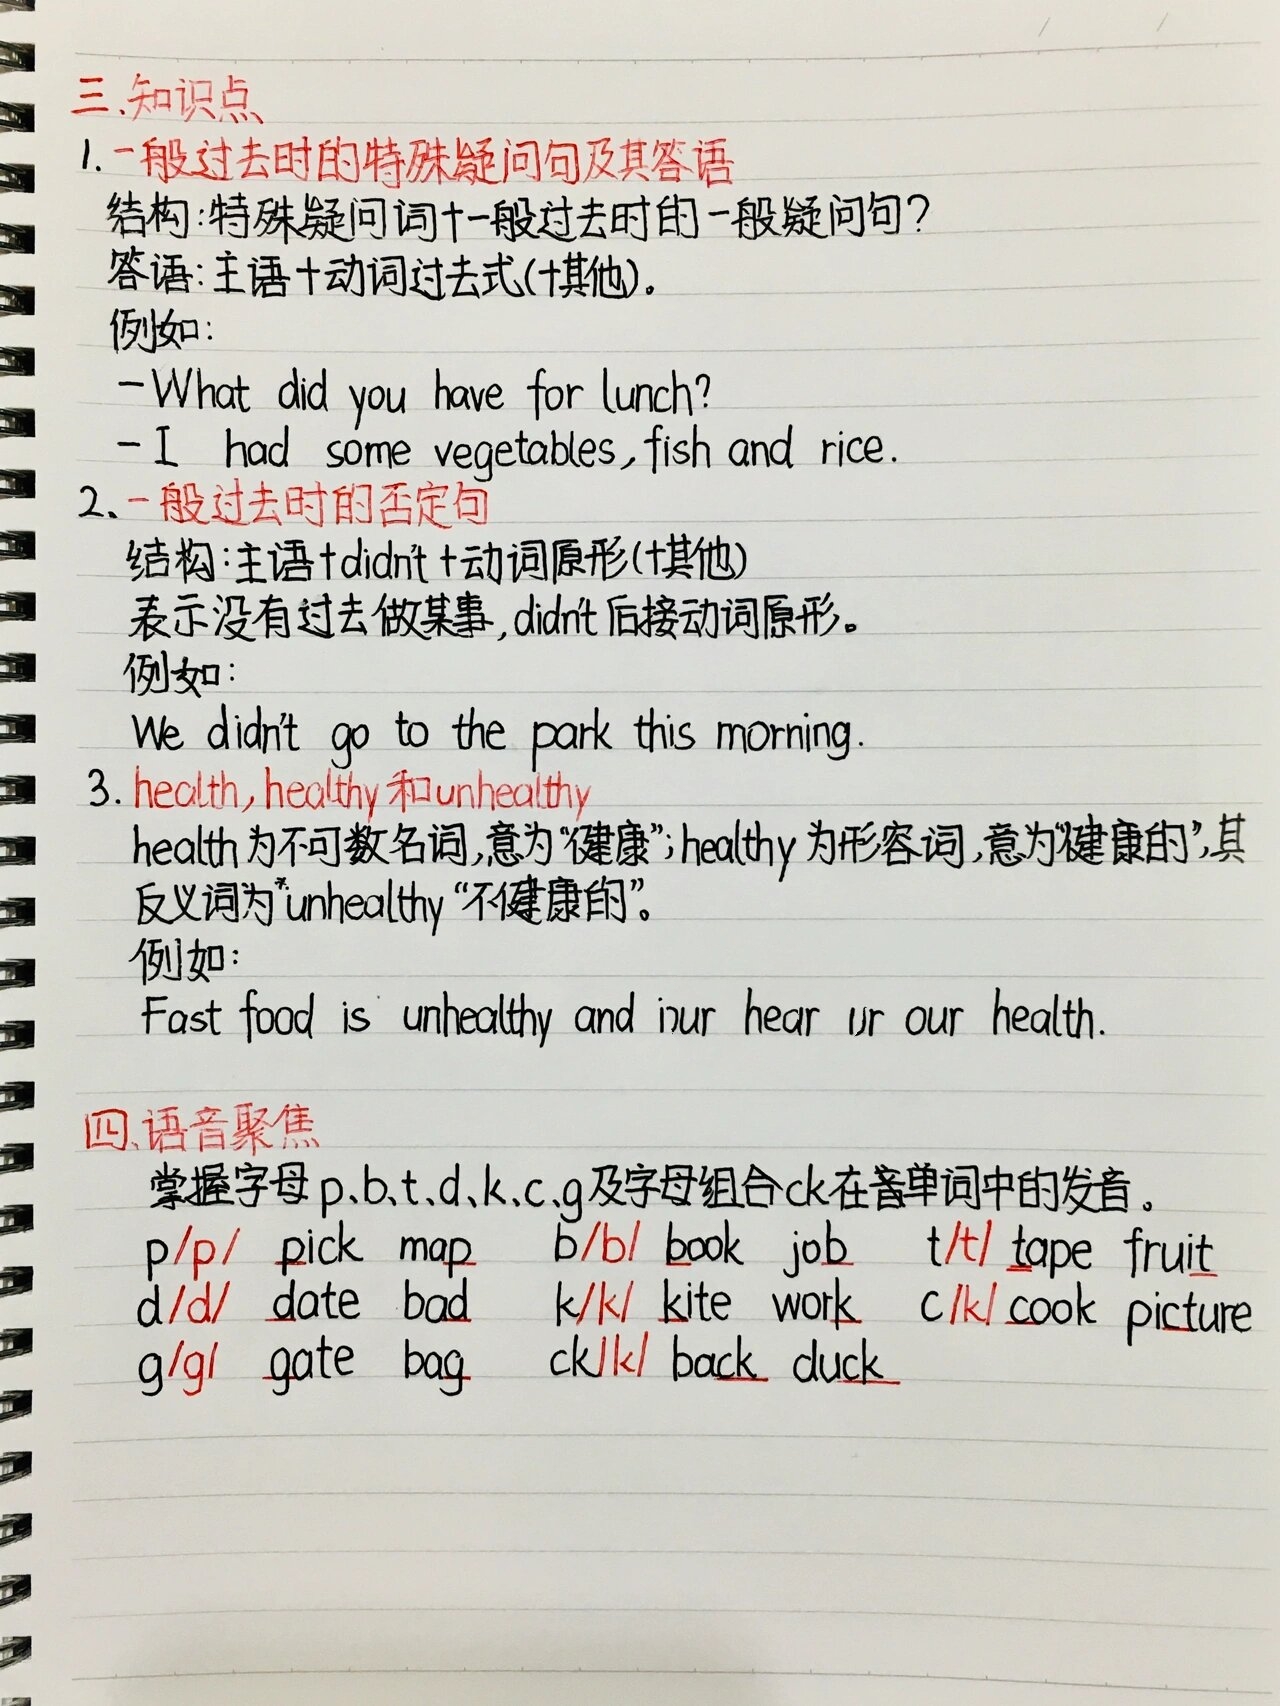 三.知识点
1.一般过去时的特殊疑问句及其答语
结构:特殊疑问词+一般过去时的一般疑问句?
答语:主语+动词过去式(+其他)。
例如:
-What did you have for lunch?
-I had some vegetables, fish and rice.
2.一般过去时的否定句
结构:主语+didn't+动词原形(+其他)
表示没有过去做某事,didn't后接动词原形。
例如:
We didn't go to the park this morning.
3.health, healthy和unhealthy
health为不可数名词,意为“健康”;healthy为形容词,意为“健康的”,其
反义词为"unhealthy“不健康的”。
例如:
Fast food is unhealthy and hear our health.
四.语音聚焦
掌握字母p、b、t、d、k、c、g及字母组合ck在音单词中的发音。
p/p/ pick map b/b/ book job t/t/ tape fruit
d/d/ date bad k/k/ kite work c/k/ cook picture
g/g/ gate bag ck/k/ back duck